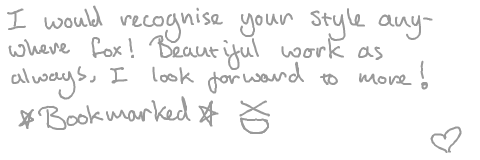 I would recognise your style any-
where fox! Beautiful work as
always, I look forward to more!
☆Bookmarked☆